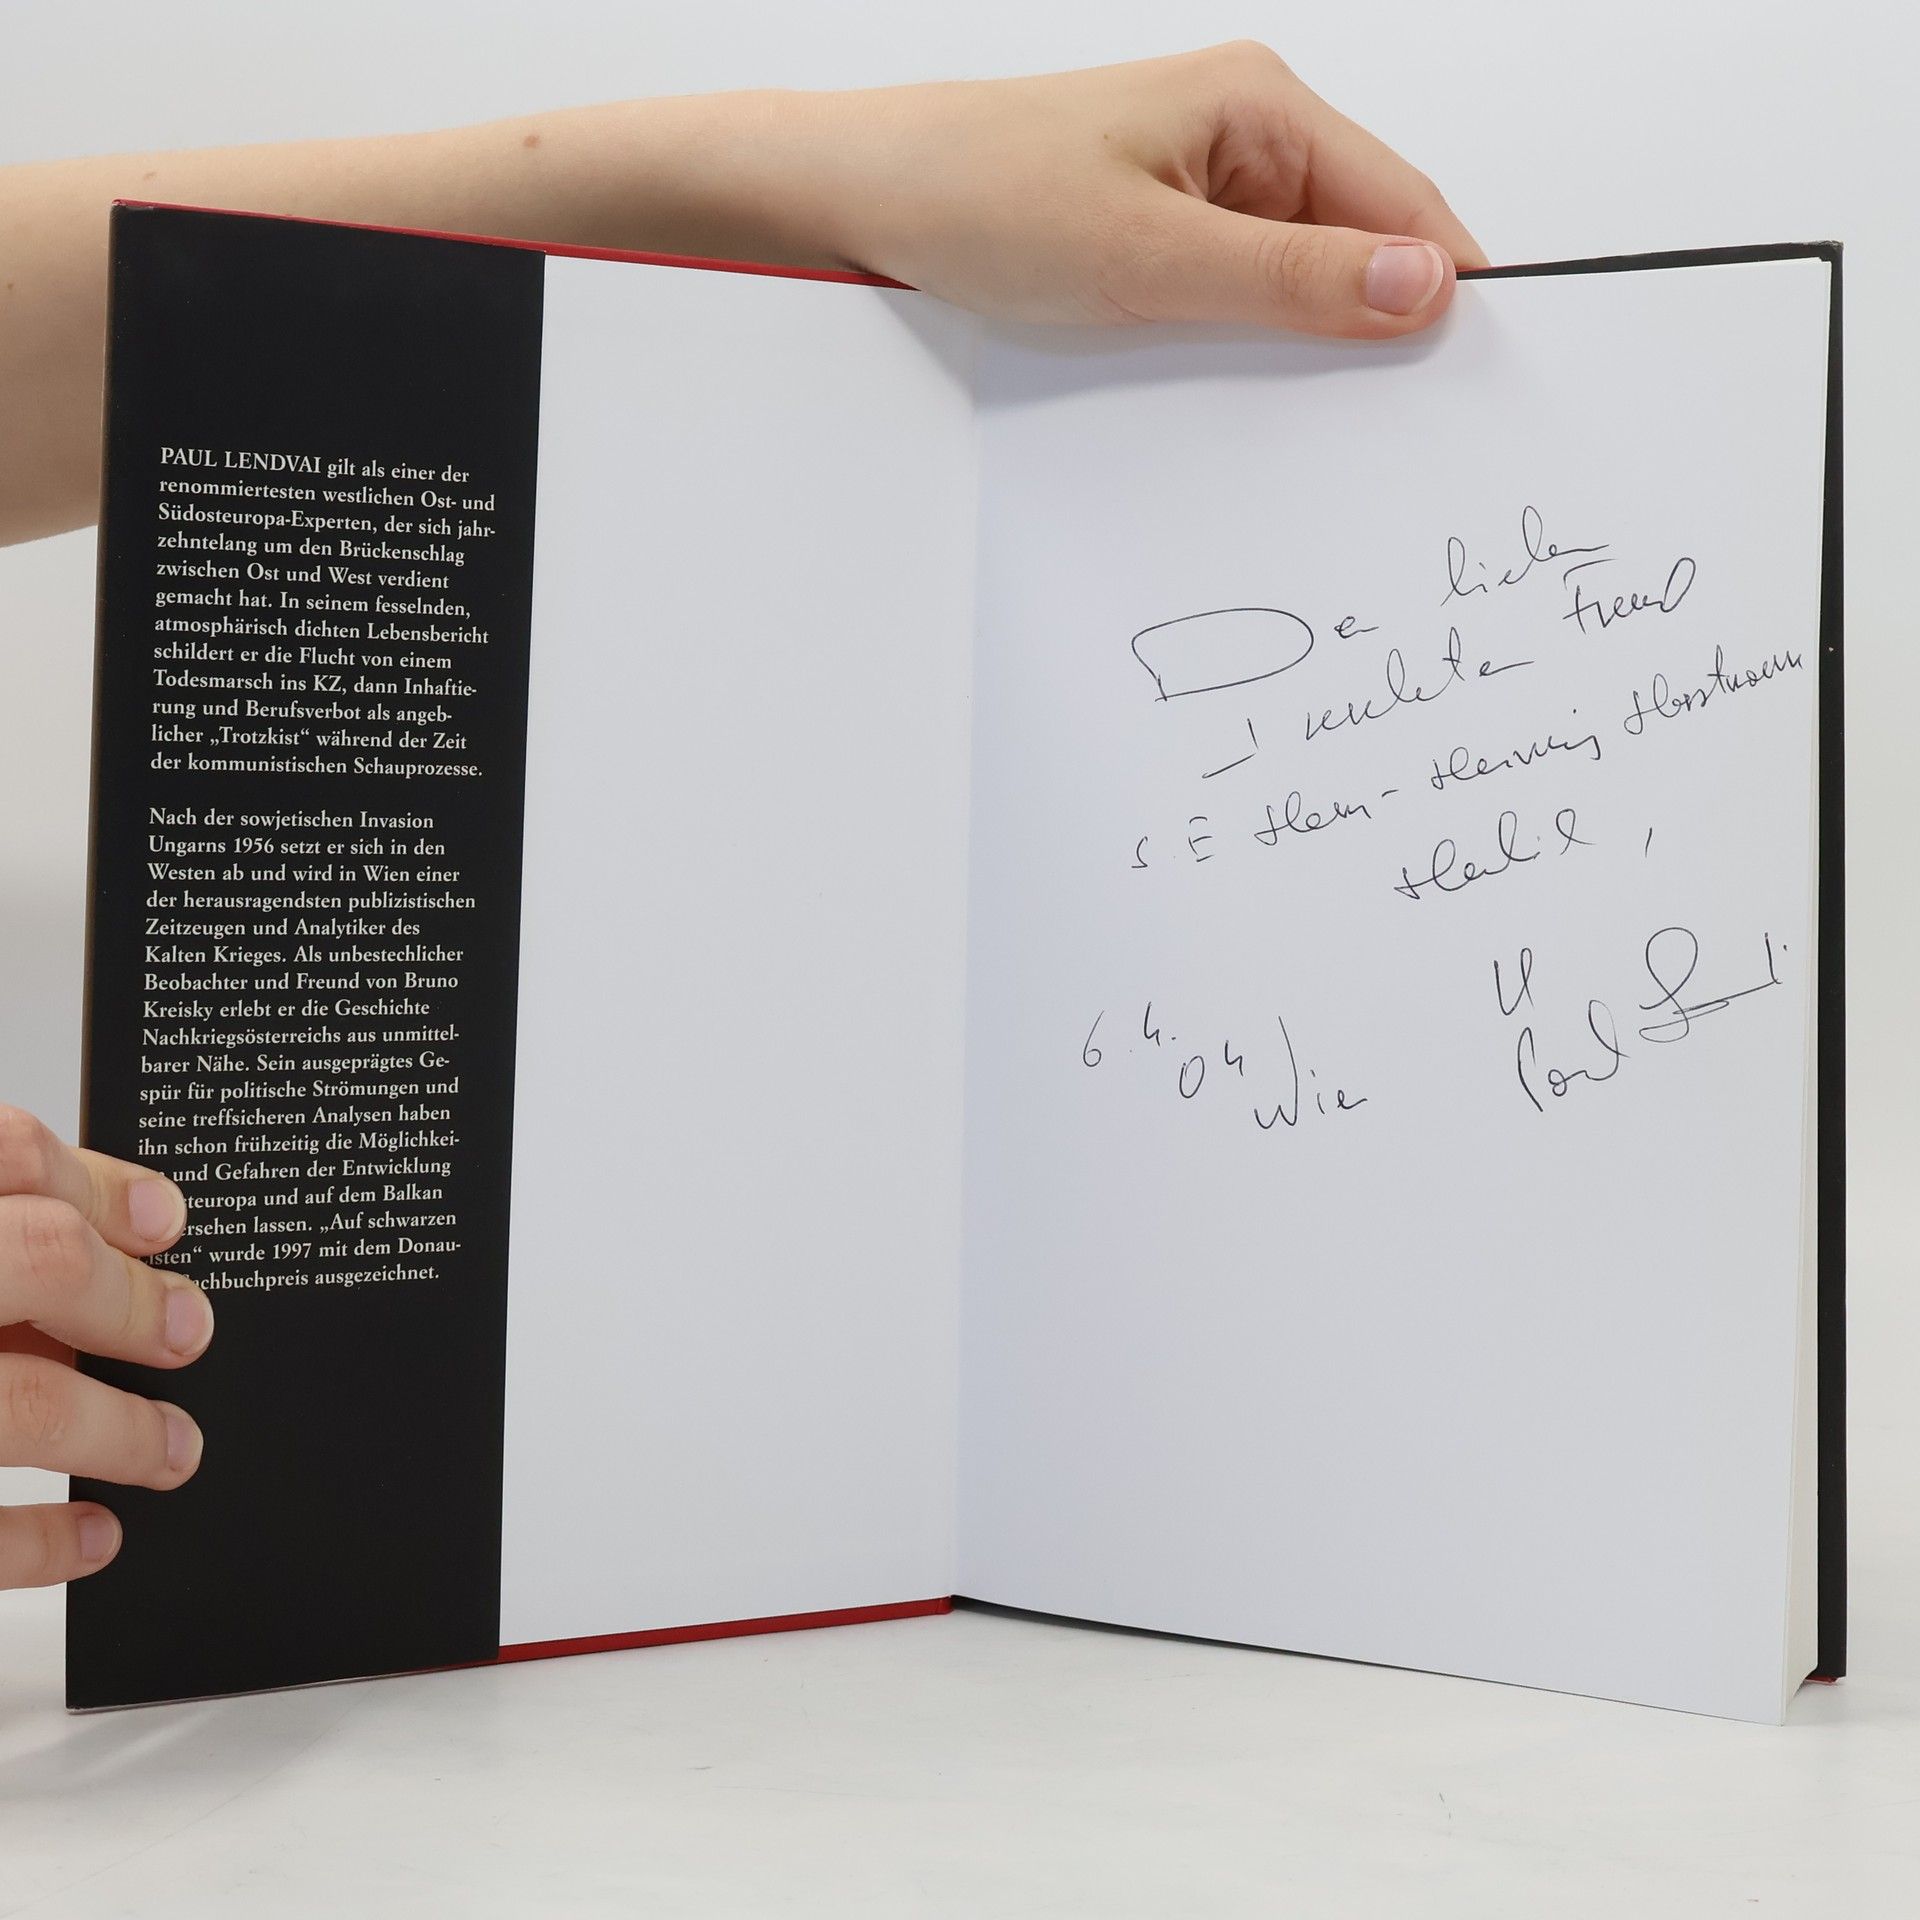 PAUL LENDVAI gilt als einer der
renommiertesten westlichen Ost- und
Südosteuropa-Experten, der sich jahr-
zehntelang um den Brückenschlag
zwischen Ost und West verdient
gemacht hat. In seinem fesselnden,
atmosphärisch dichten Lebensbericht
schildert er die Flucht von einem
Todesmarsch ins KZ, dann Inhaftie-
rung und Berufsverbot als angeb-
licher „Trotzkist“ während der Zeit
der kommunistischen Schauprozesse.
Nach der sowjetischen Invasion
Ungarns 1956 setzt er sich in den
Westen ab und wird in Wien einer
der herausragendsten publizistischen
Zeitzeugen und Analytiker des
Kalten Krieges. Als unbestechlicher
Beobachter und Freund von Bruno
Kreisky erlebt er die Geschichte
Nachkriegsösterreichs aus unmittel-
barer Nähe. Sein ausgeprägtes Ge-
spür für politische Strömungen und
seine treffsicheren Analysen haben
ihn schon frühzeitig die Möglichkei-
und Gefahren der Entwicklung
steuropa und auf dem Balkan
ersehen lassen. „Auf schwarzen
isten“ wurde 1997 mit dem Donau-
achbuchpreis ausgezeichnet.
lieben
Freund
S E Hans-Henning Horstmann
6.4.
04
Wien
Paul Lendvai